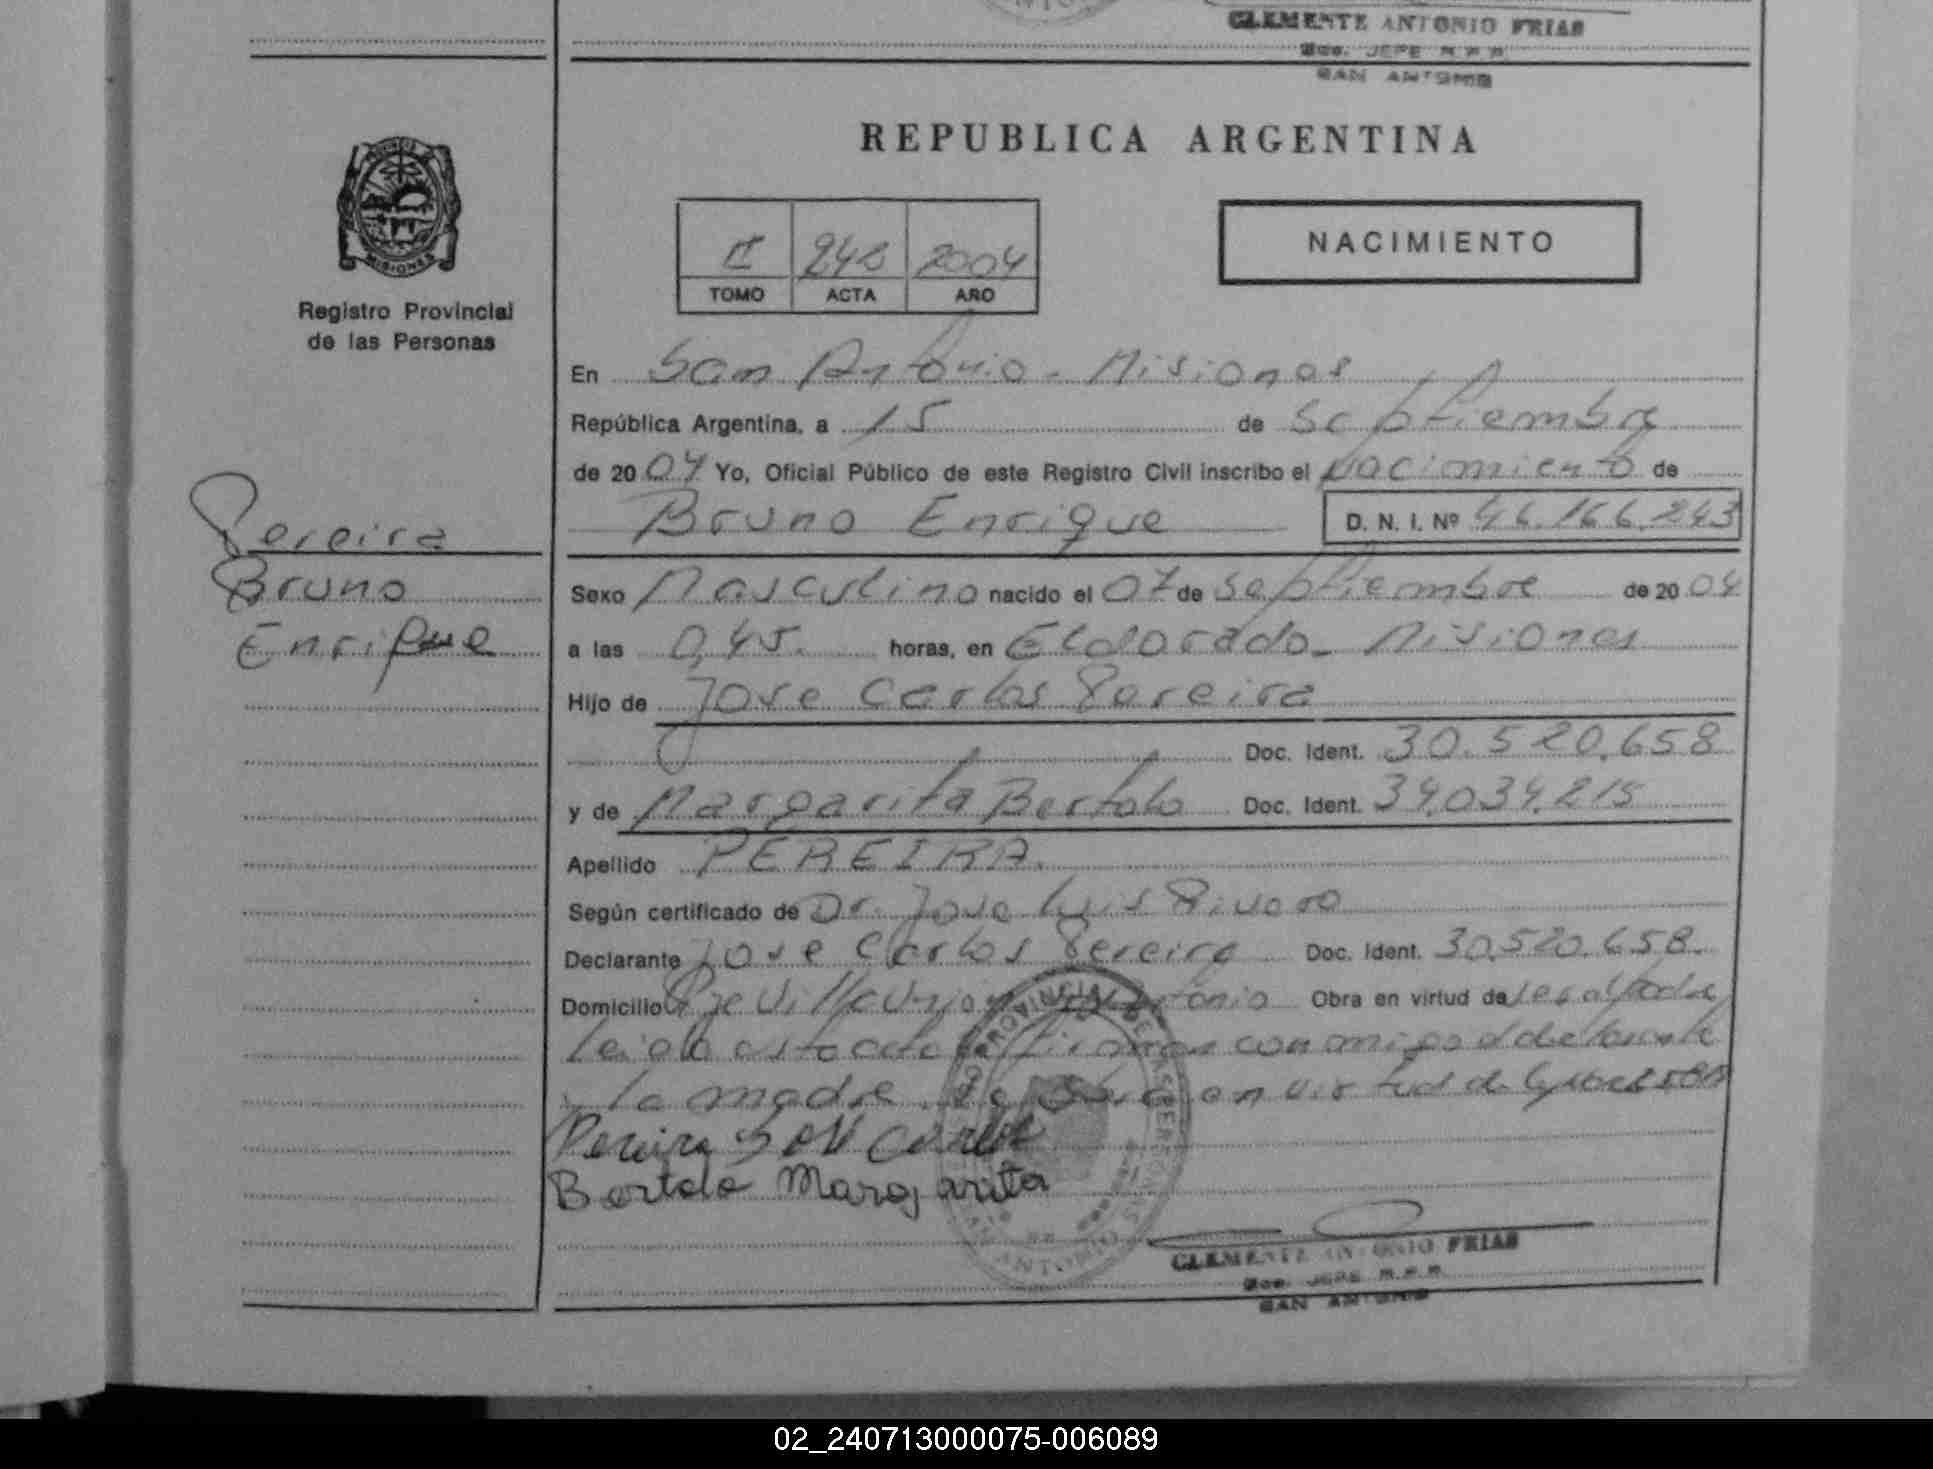 CLEMENTE ANTONIO FRIAS
JEFE R.P.P.
SAN ANTONIO
REPUBLICA ARGENTINA
PROVINCIA DE
MISIONES
Registro Provincial
de las Personas
II 248 2004
TOMO ACTA AÑO
NACIMIENTO
En San Antonio - Misiones
República Argentina, a 15 de Septiembre
de 2004 Yo, Oficial Público de este Registro Civil inscribo el Nacimiento de
Bruno Enrique D. N. I. Nº 46.166.243
Pereira
Bruno
Enrique
Sexo Masculino nacido el 07 de Septiembre de 2004
a las 0,45. horas, en Eldorado - Misiones
Hijo de Jose Carlos Pereira
Doc. Ident. 30.520.658
y de Margarita Bertolo Doc. Ident. 34.034.215
Apellido PEREIRA.
Según certificado de Dr. Jose Luis Rivero
Declarante Jose Carlos Pereira Doc. Ident. 30.520.658.
Domicilio Pje Villa Union San Antonio Obra en virtud de ser el padre
leida esta acta la firman conmigo el declarante
y la madre en virtud de
Pereira Jose Carlos
Bertolo Margarita
PROVINCIAL DE LAS PERSONAS
SAN ANTONIO
CLEMENTE ANTONIO FRIAS
JEFE R.P.P.
SAN ANTONIO
02_240713000075-006089